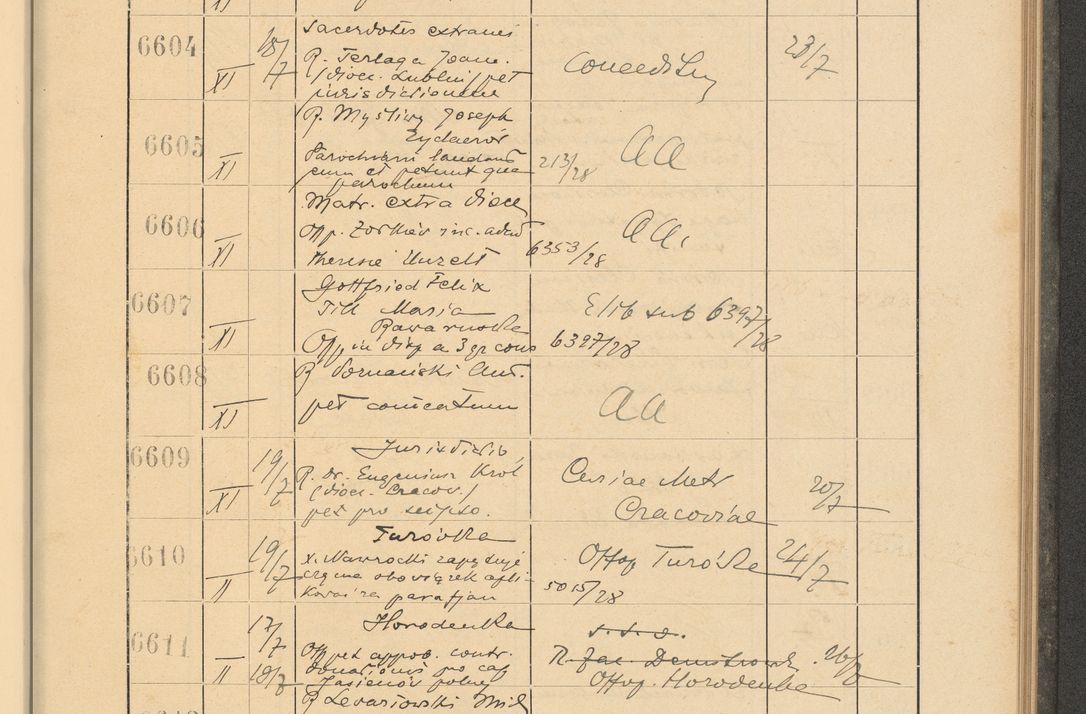 XI
6604 XI 18/7 Sacerdotes extranei
R. Terlaga Joann.
(dioec. Lublin) pet
jurisdictionem
Conceditur 23/7
6605 XI R. Myśliwy Joseph
Żydaczów
Parochiani laudant
eum et petunt qua
parochum
213/28 aa
6606 XI Matr. extra dioec
Off. Żółkiew inc. adud
Theresie Unzelt
6353/28 aa.
6607 XI Gottfried Felix
Till Maria
Off in disp a 3 gr cons
Elib sub 6397/28
6397/28
6608 XI R
pet comeatum
aa
6609 XI 19/7 Jurisdictio,
R. Dr. Eugenius Król
(dioec. Cracov.)
pet pro seipso.
Curiae Metr
Cracoviae 20/7
6610 II 19/7 Turówka
x. Nawrocki zapytuje
czy ma obowiązek apli-
kować za parafjan
Offo Turówka 24/7
5015/28
6611 II 17/7 18/7 Horodenka
Off pet approb. contr.
donationis pro cap
Jasienów polny
s. s. o.
R. Jac. 26/7
Offo. Horodenka
R